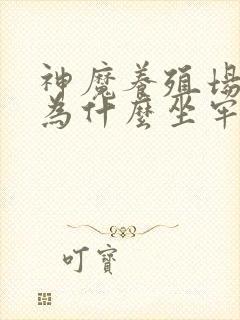 神魔養殖場
為什麼坐牢
叮寶